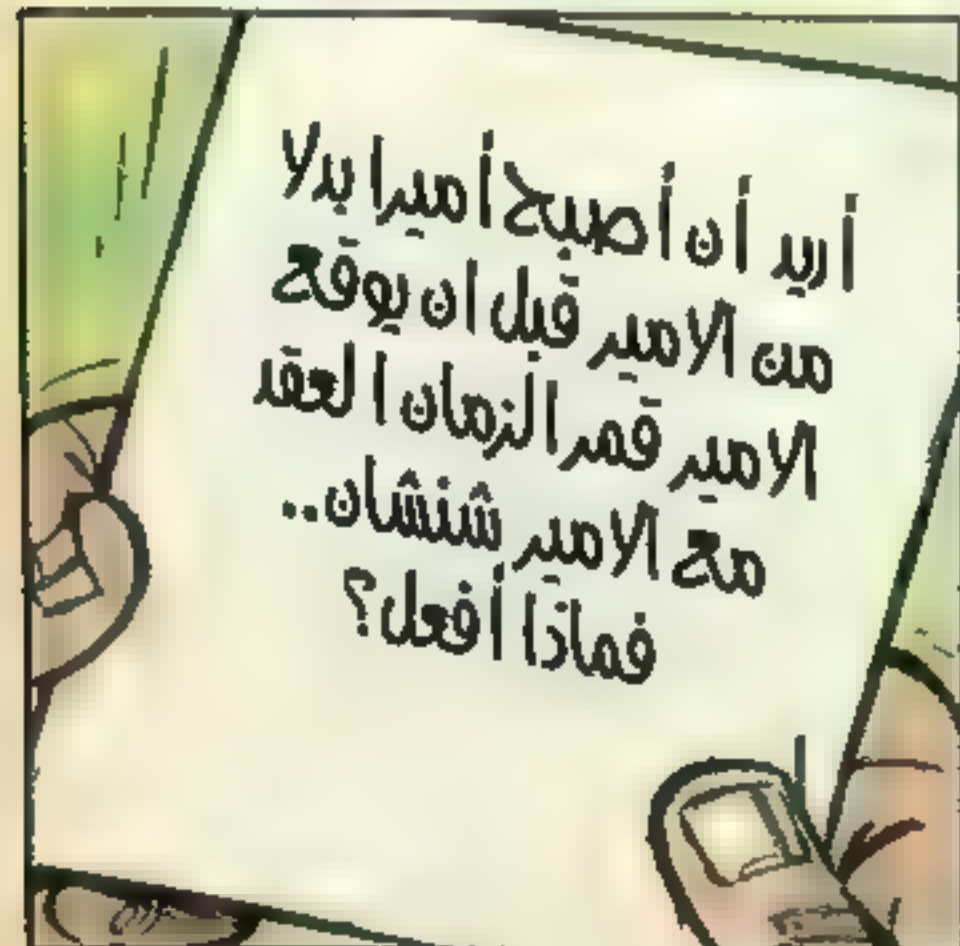 أريد أن أصبح أميرا بدلا
من الامير قبل ان يوقع
الامير قمر الزمان العقد
مع الامير شنشان..
فماذا أفعل؟